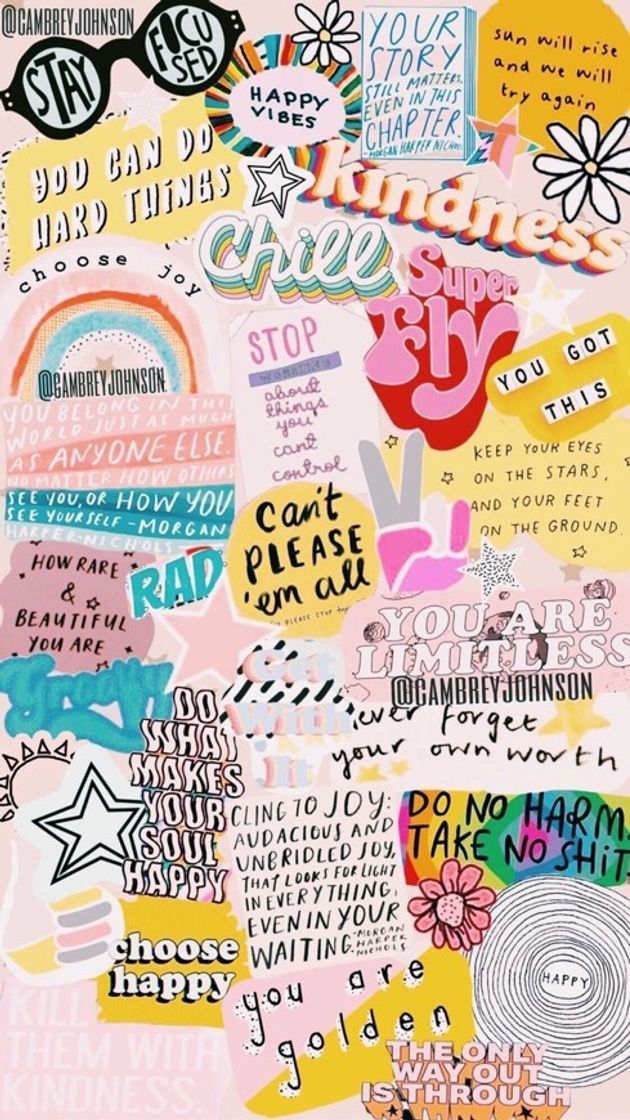 @CAMBREYJOHNSON
STAY
FOCU
SED
HAPPY
VIBES
YOUR
STORY
STILL MATTERS.
EVEN IN THIS
CHAPTER.
-MORGAN HARPER NICHOLS
sun will rise
and we will
try again
YOU CAN DO
HARD THINGS
kindness
choose joy
Chill
Super
Fly
@CAMBREYJOHNSON
STOP
WORRYING
about
things
you
can't
control
YOU GOT
THIS
YOU BELONG IN THIS
WORLD JUST AS MUCH
AS ANYONE ELSE.
NO MATTER HOW OTHERS
SEE YOU, OR HOW YOU
SEE YOURSELF-MORGAN
HARPER-NICHOLS
KEEP YOUR EYES
ON THE STARS,
AND YOUR FEET
ON THE GROUND.
can't
PLEASE
'em all
PLEASE STOP
HOW RARE
&
BEAUTIFUL
YOU ARE
RAD
YOU ARE
LIMITLESS
@CAMBREYJOHNSON
Groovy
Get
With
it
ever forget
your own worth
DO
WHAT
MAKES
YOUR
SOUL
HAPPY
CLING TO JOY:
AUDACIOUS AND
UNBRIDLED JOY,
THAT LOOKS FOR LIGHT
IN EVERYTHING,
EVEN IN YOUR
WAITING.
-MORGAN
HARPER
NICHOLS
DO NO HARM.
TAKE NO SHIT.
choose
happy
HAPPY
you are
golden
KILL
THEM WITH
KINDNESS.
THE ONLY
WAY OUT
IS THROUGH